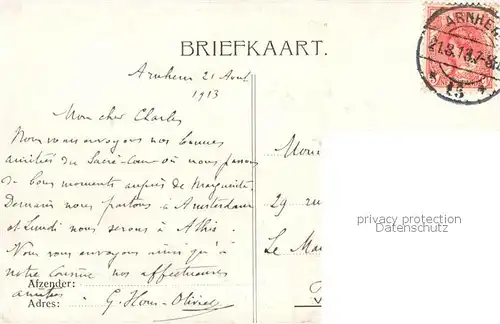 BRIEFKAART.
ARNHEM
21.8.13.7-8
* 13 *
Arnhem 21 Aout
1913
Mon cher Charles
Nous vous envoyons nos bonnes
amitiés du Sacré-Coeur où nous passons
de bons moments auprès de Marguerite.
Demain nous partons à Amsterdam
et Lundi nous serons à Athis.
Nous vous envoyons ainsi qu'à
notre Cousine nos affectueuses
Afzender: amitiés
Adres: G. Olivier
29 ru
Le Ma
privacy protection
Datenschutz